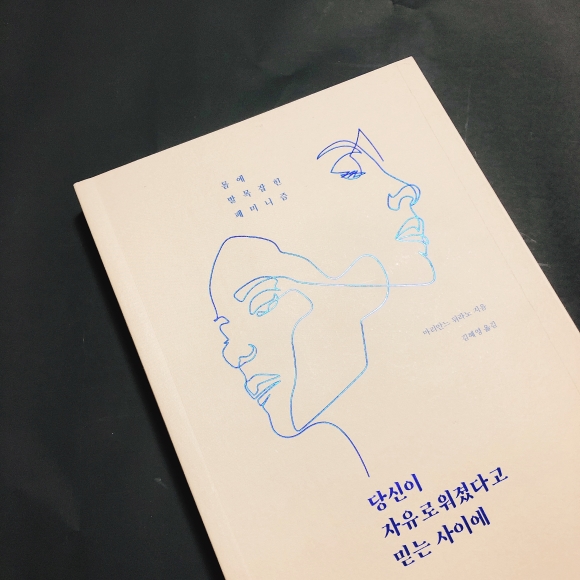 몸에
발목잡힌
페미니즘
마리안느 뒤라노 지음
김혜영 옮김
당신이
자유로워졌다고
믿는 사이에